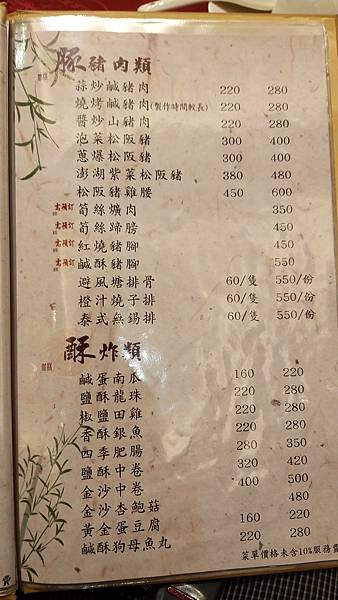 豚豬肉類
蒜炒鹹豬肉 220 280
燒烤鹹豬肉(製作時間較長) 220 280
醬炒山豬肉 220 280
泡菜松阪豬 300 400
蔥爆松阪豬 300 400
澎湖紫菜松阪豬 380 480
松阪豬雞腰 450 600
需預訂 筍絲爌肉 350
需預訂 筍絲蹄膀 450
需預訂 紅燒豬腳 450
需預訂 鹹酥豬腳 550
避風塘排骨 60/隻 550/份
橙汁燒子排 60/隻 550/份
泰式無錫排 60/隻 550/份
酥炸類
鹹蛋南瓜 160 220
鹽酥龍珠 220 280
椒鹽田雞 220 280
香酥銀魚 220 280
四季肥腸 280 350
鹽酥中卷 320 420
金沙中卷 400 500
金沙杏鮑菇 480
黃金蛋豆腐 160 220
鹹酥狗母魚丸 220 280
菜單價格未含10%服務費